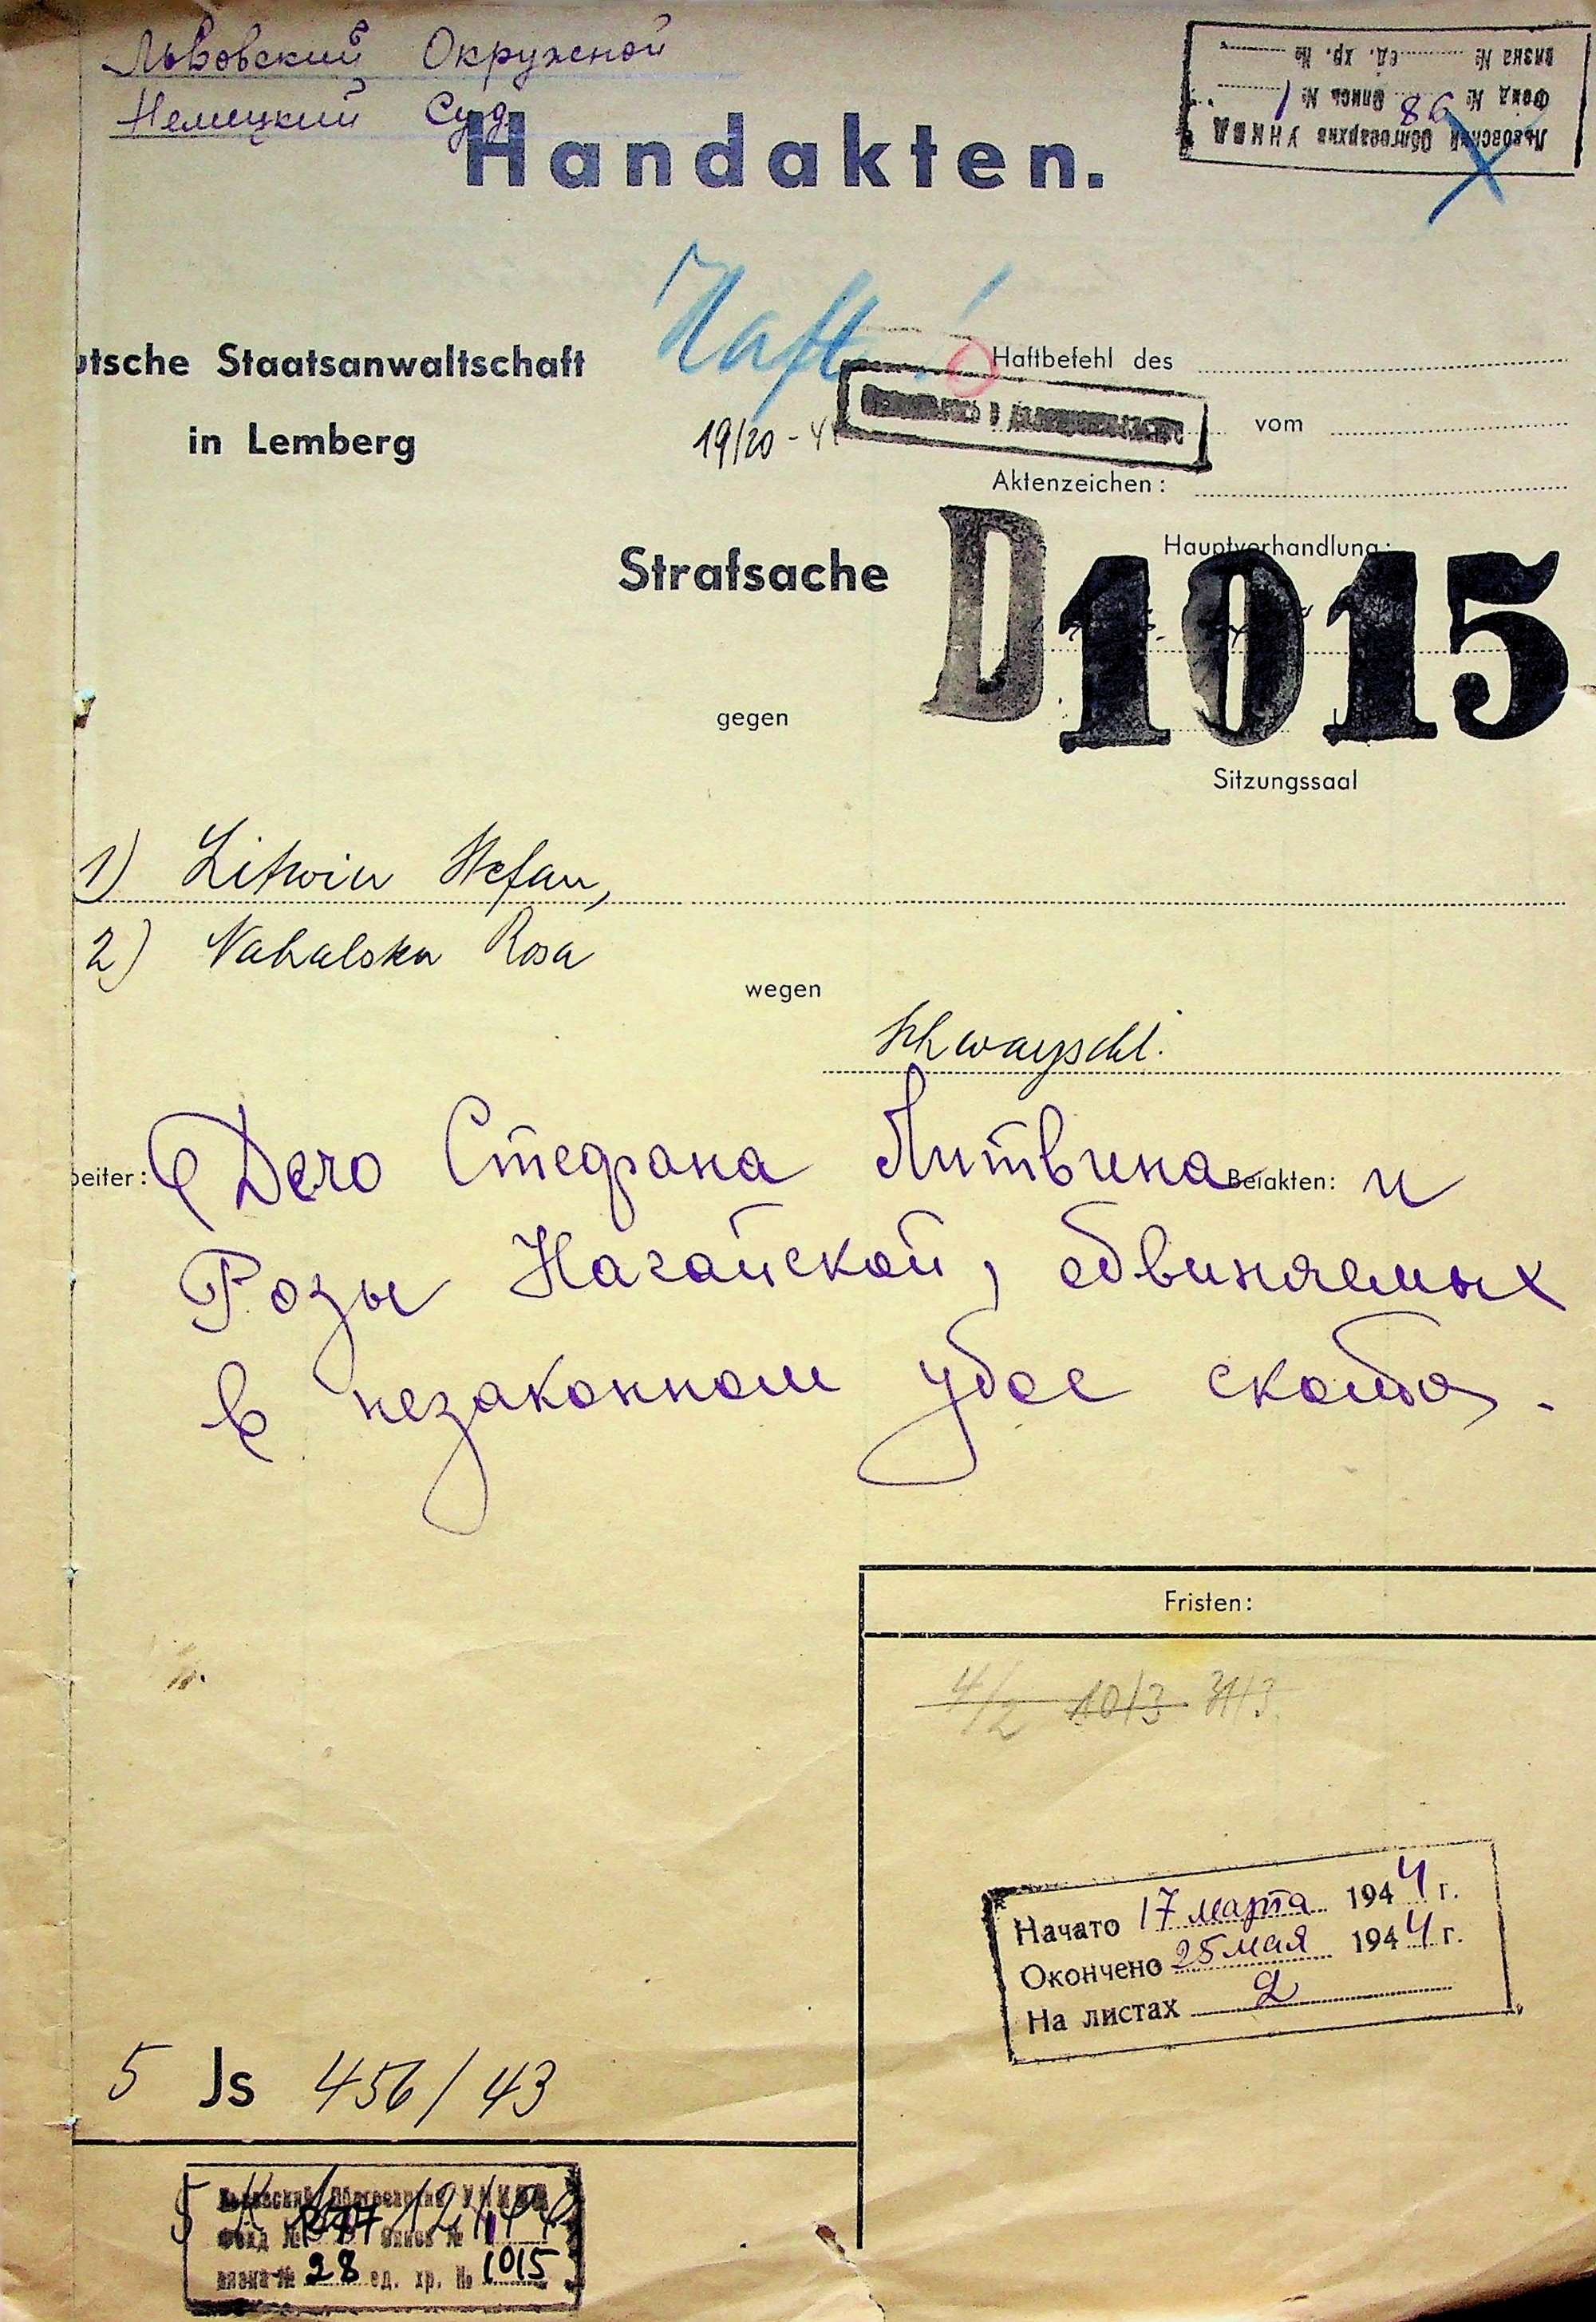 Львовский Окружной
Немецкий Суд
Львовский Облгосархив УНКВД
Фонд № 98 Опись № 1
вязка № ед. хр. №
Handakten.
Haft!
utsche Staatsanwaltschaft
in Lemberg
19/20 - 4
Haftbefehl des
vom
Aktenzeichen:
Hauptverhandlung:
Strafsache
D1015
gegen
Sitzungssaal
1) Litwin Stefan,
2) Nahalska Rosa
wegen
Schwarzschl.
beiter:
Beiakten:
Дело Стефана Литвина и
Розы Нагайской, обвиняемых
в незаконном убое скота.
Fristen:
4/2 10/3 31/3
Начато 17 марта 1944 г.
Окончено 25 мая 1944 г.
На листах 2
5 Js 456/43
5 K 12/44
Львовский Облгосархив
Фонд № Опись № 1
вязка № 28 ед. хр. № 1015